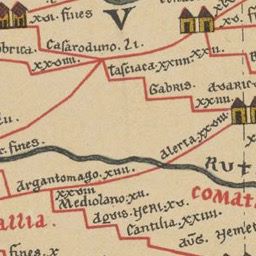 xvi. fines
xv. fi
V
brica.
Casaroduno. 21.
xxviiii.
tasciaca. xxiiii.
xxii.
Gabris.
avaric
xxiiii.
alerta. xxviii
fines.
Rut
argantomago. xiiii.
xxviii
Mediolano. xii.
COMAT
allia.
aqvis. neri. xv.
Cantilia. xxiiii.
fines. x
avg. nemet